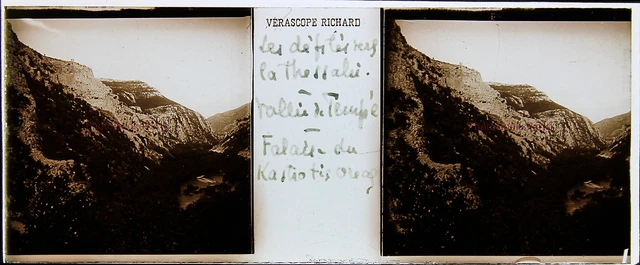 VÉRASCOPE RICHARD
Les défilés vers
la Thessalie.
Vallée de Tempé
Falaise du